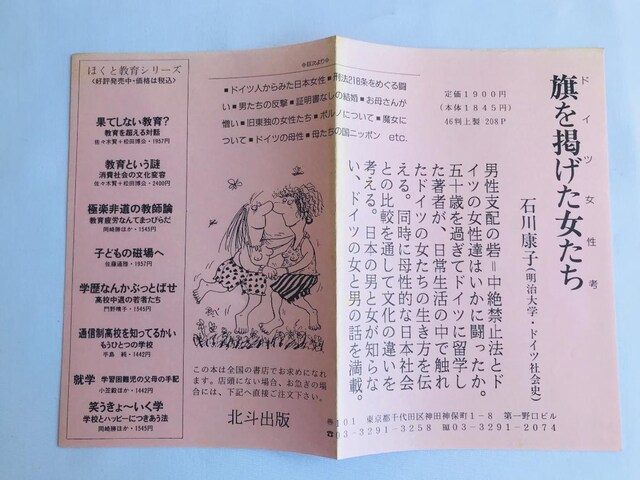 ドイツ女性考
旗を掲げた女たち
石川康子(明治大学・ドイツ社会史)
定価1900円
(本体1845円)
46判上製 208P
男性支配の砦=中絶禁止法とド
イツの女性達はいかに闘ったか。
五十歳を過ぎてドイツに留学し
た著者が、日常生活の中で触れ
たドイツの女たちの生き方を伝
える。同時に母性的な日本社会
との比較を通して文化の違いを
考える。日本の男と女が知らな
い、ドイツの女と男の話を満載。
◇目次より◇
■ドイツ人からみた日本女性■刑法218条をめぐる闘
い■男たちの反撃■証明書なしの結婚■お母さんが
憎い■旧東独の女性たち■ポルノについて■魔女に
ついて■ドイツの母性■母たちの国ニッポン etc.
この本は全国の書店でお求めになれ
ます。店頭にない場合、お急ぎの場
合には、下記へ直接ご注文下さい。
北斗出版
〒101 東京都千代田区神田神保町1-8 第一野口ビル
☎03-3291-3258 FAX03-3291-2074
ほくと教育シリーズ
〈好評発売中・価格は税込〉
果てしない教育?
教育を超える対話
佐々木賢+松田博公・1957円
教育という謎
消費社会の文化変容
佐々木賢+松田博公・2400円
極楽非道の教師論
教育疲労なんてまっぴらだ
岡崎勝ほか・1545円
子どもの磁場へ
佐藤通雅・1957円
学歴なんかぶっとばせ
高校中退の若者たち
門野晴子・1545円
通信制高校を知ってるかい
もうひとつの学校
手島 純・1442円
就学 学習困難児の父母の手記
小笠毅ほか・1442円
笑うきょ〜いく学
学校とハッピーにつきあう法
岡崎勝ほか・1545円